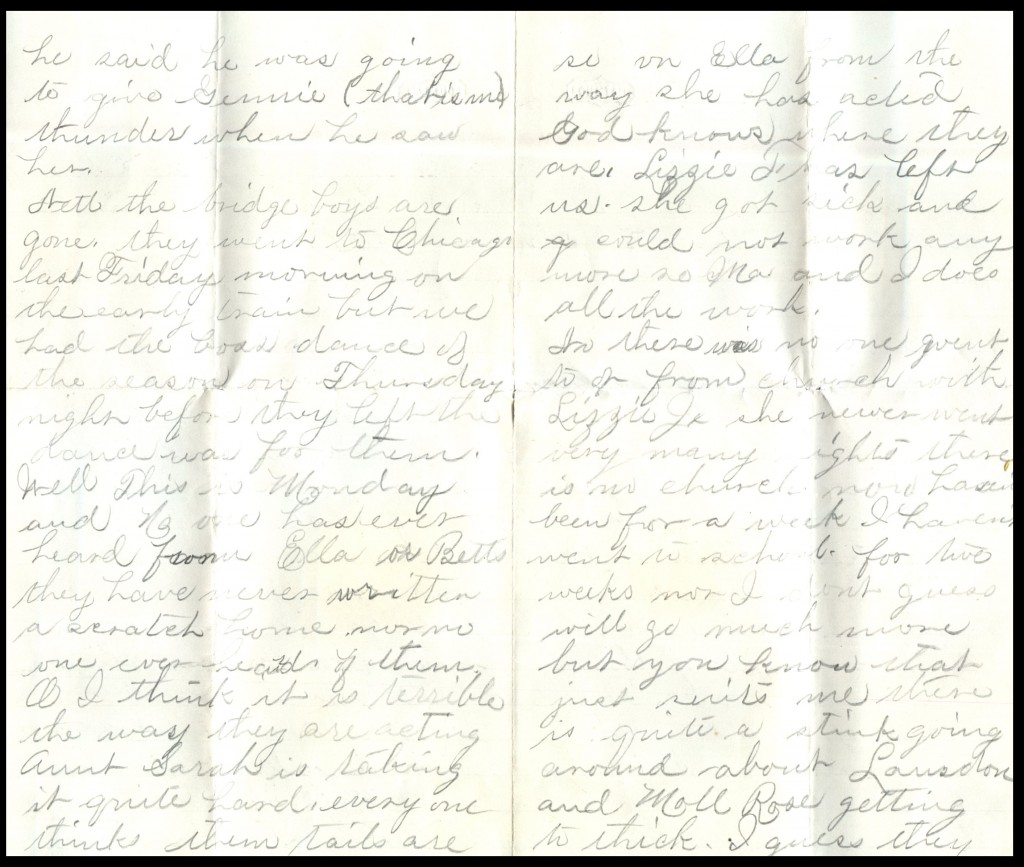 he said he was going
to give Gennie (that is me)
thunder when he saw
her.
Well the bridge boys are
gone. they went to Chicago
last Friday morning on
the early train but we
had the boss dance of
the season on Thursday
night befor they left the
dance was for them.
Well This is Monday
and No one has ever
heard from Ella or Betts
they have never written
a scratch home nor no
one ever heards of them.
O I think it is terrible
the way they are acting
Aunt Sarah is taking
it quite hard. every one
thinks them tails are
so on Ella from the
way she has acted
God knows where they
are. Lizzie has left
us. she got sick and
could not work any
more so Ma and I does
all the work.
No there was no one went
to or from church with
Lizzie she never went
very many nights there
is no church now hasint
been for a week I haven't
went to school for two
weeks nor I dont guess
will go much more
but you know that
just suits me there
is quite a stink going
around about Lansdon
and Moll Rose getting
to thick. I guess they